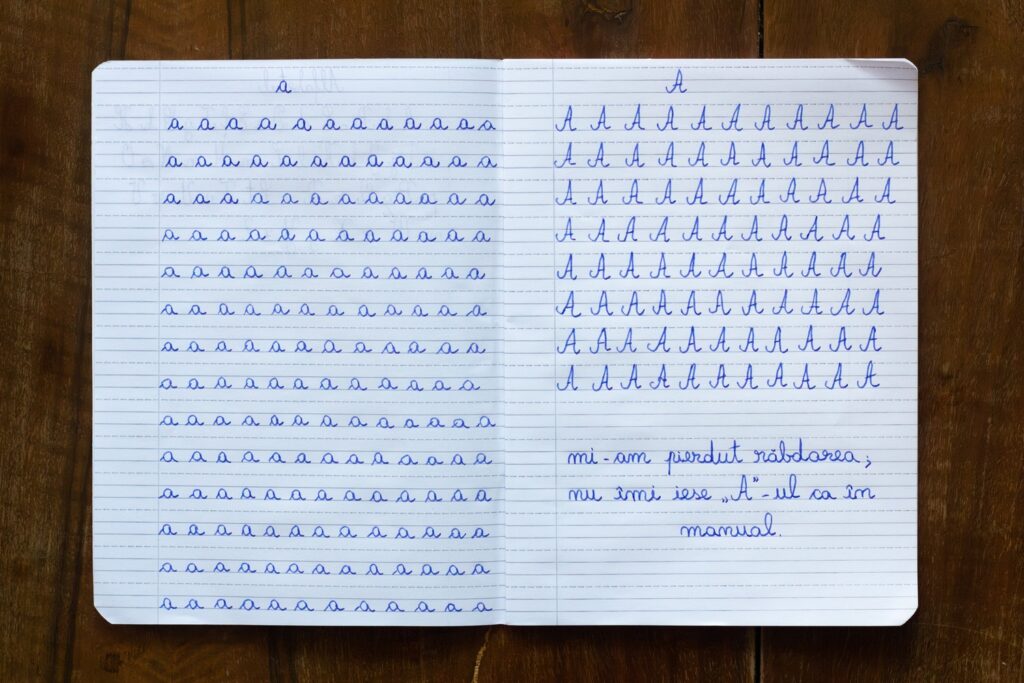 a
a a a a a a a a a a a a
a a a a a a a a a a a a
a a a a a a a a a a a a
a a a a a a a a a a a a
a a a a a a a a a a a a
a a a a a a a a a a a a
a a a a a a a a a a a a
a a a a a a a a a a a a
a a a a a a a a a a a a a
a a a a a a a a a a a a a
a a a a a a a a a a a a a
a a a a a a a a a a a a a
a a a a a a a a a a a a a
a a a a a a a a a a a a a
A
A A A A A A A A A A A
A A A A A A A A A A A
A A A A A A A A A A A
A A A A A A A A A A A
A A A A A A A A A A A
A A A A A A A A A A A
A A A A A A A A A A A
A A A A A A A A A A A
mi-am pierdut răbdarea;
nu îmi iese „A”-ul ca în
manual.